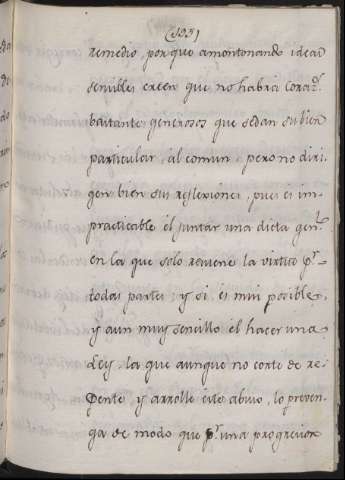 (335)
remedio, porque amontonando ideas
sensibles creen que no habrá coraz.s
bastantes generosos que sedan su bien
particular, al comun; pero no diri
gen bien sus reflexiones, pues es im-
practicable el juntar una dieta gen.l
en la que solo reuene la virtud p.r
todas partes; y si es mui posible,
y aun muy sencillo el hacer una
Ley, la que aunque no corte de re
pente y arrolle este abuso, lo preven
ga de modo que p.r una progresion